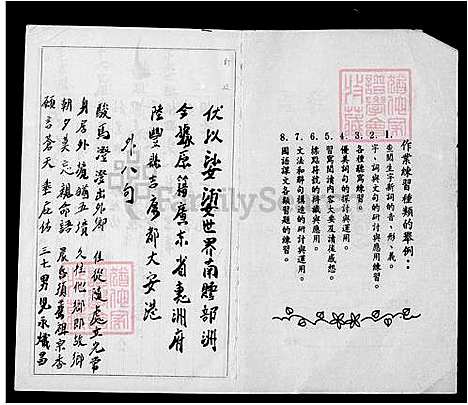 作業練習種類的舉例：
1. 查閱生字新詞的音、形、義。
2. 字、詞與文句的研討與應用練習。
3. 各種聽寫練習。
4. 優美詞句的探討與運用。
5. 習寫閱讀內容大要及讀後感想。
6. 標點符號的辨識與應用。
7. 文法和聯句構造的研討與運用。
8. 國語課文各類習題的練習。
伏以娑婆世界南贍部洲
今據原籍廣東省惠洲府
陸豐縣吉康都大安港
外八句
駿馬 出外鄉
身居外境 五墳 久住他鄉即故鄉
朝夕莫忘親命語 晨昏須薦祖宗香
願言蒼天垂庇佑 三七男兒永熾昌
FamilySearch